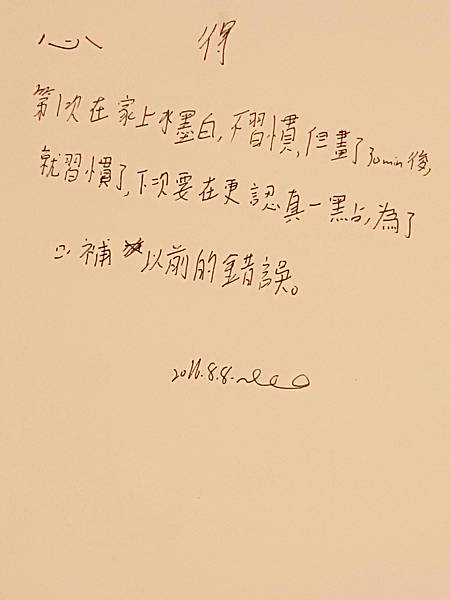 心得
第1次在家上水墨白,不習慣,但畫了30min後,
就習慣了,下次要在更認真一點,為了
補以前的錯誤。
2016.8.8.